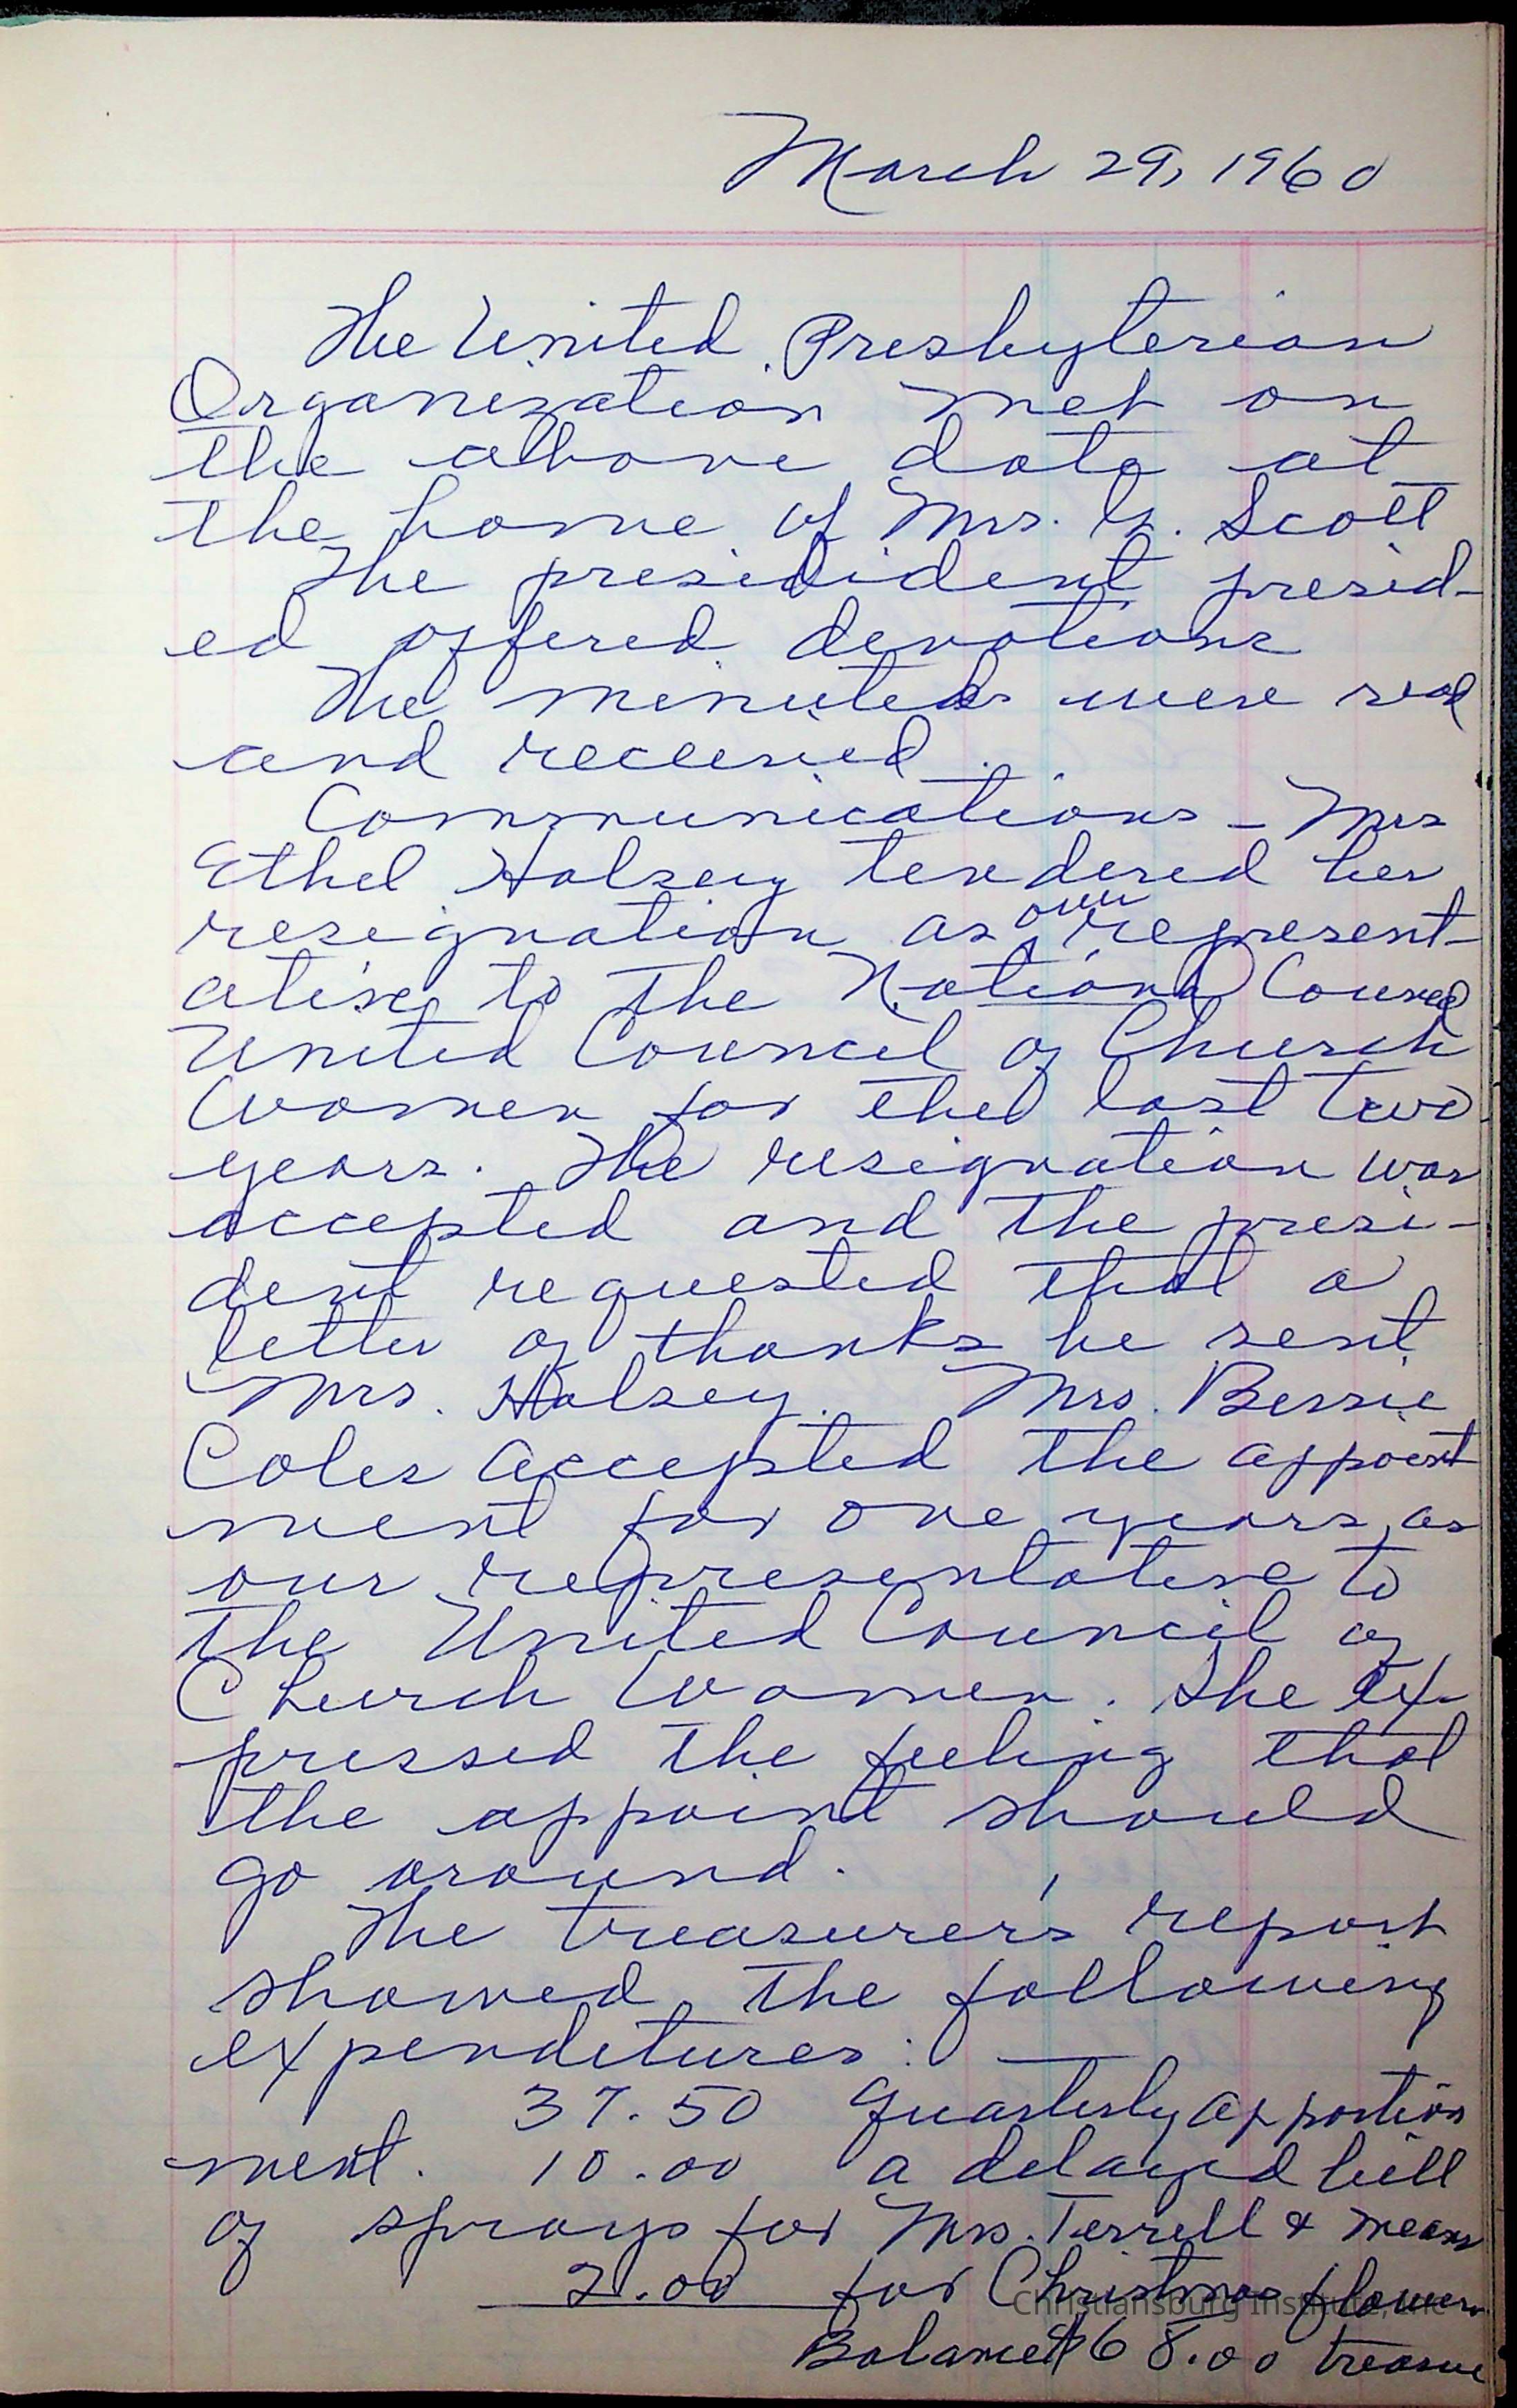 March 29, 1960
The United Presbyterian
Organization met on
the above date at
the home of Mrs. G. Scott
The president presid-
ed offered devotions
The minutes were read
and received.
Communications - Mrs
Ethel Halsey tendered her
resignation as our represent-
ative to the National Council
United Council of Church
Women for the last two
years. The resignation was
accepted and the presi-
dent requested that a
letter of thanks be sent
Mrs. Halsey. Mrs. Bessie
Coles accepted the appoint
ment for one years, as
our representative to
the United Council of
Church Women. She ex-
pressed the feeling that
the appoint should
go around.
The treasurer's report
showed the following
expenditures: —
37.50 quarterly apportion
ment. 10.00 a delayed bill
of sprays for Mrs. Terrell & Means
2.00 for Christmas flowers
Balance $68.00 treasure
Christiansburg Institute, Inc